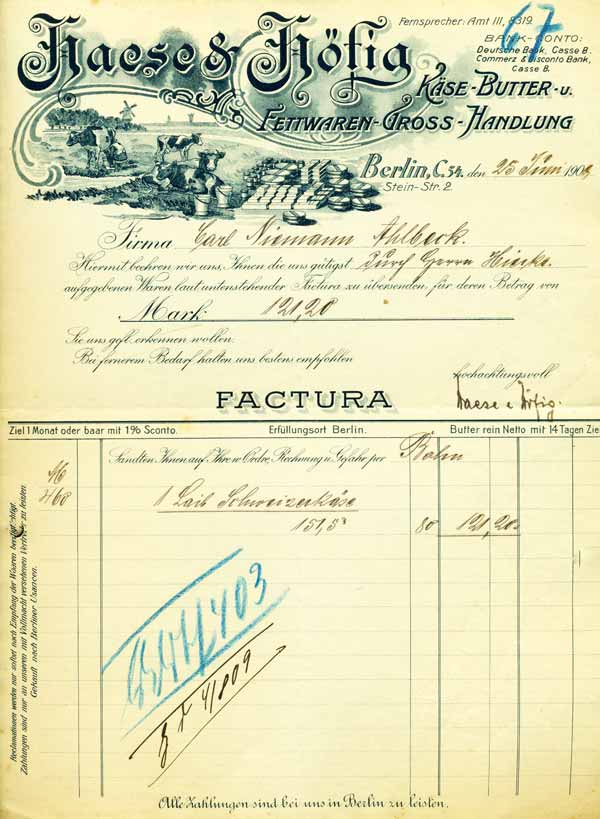 Haese & Höfig
Fernsprecher: Amt III, 8319.
67
BANK-CONTO:
Deutsche Bank, Casse B.
Commerz & Disconto Bank,
Casse B.
KÄSE-BUTTER-u.
FETTWAREN-GROSS-HANDLUNG
Berlin, C.54. den 25 Juni 190
Stein-Str. 2.
Firma Carl Niemann Ahlbeck.
Hiermit beehren wir uns, Ihnen die uns gütigst durch Herrn
aufgegebenen Waren laut untenstehender Factura zu übersenden, für deren Betrag von
Mark: 121,20
Sie uns gefl. erkennen wollen.
Bei fernerem Bedarf halten uns bestens empfohlen
hochachtungsvoll
Haese & Höfig.
FACTURA
Ziel 1 Monat oder baar mit 1% Sconto.
Erfüllungsort Berlin.
Butter rein Netto mit 14 Tagen Ziel
Sandten Ihnen auf Ihre w. Ordre, Rechnung u. Gefahr per Bahn
460
1 Laib Schweizerkäse
151,5
80
121,20
Reclamationen werden nur sofort nach Empfang der Waaren berücksichtigt.
Zahlungen sind nur an unseren mit Vollmacht versehenen Vertreter zu leisten.
Gekauft nach Berliner Usancen.
Alle Zahlungen sind bei uns in Berlin zu leisten.